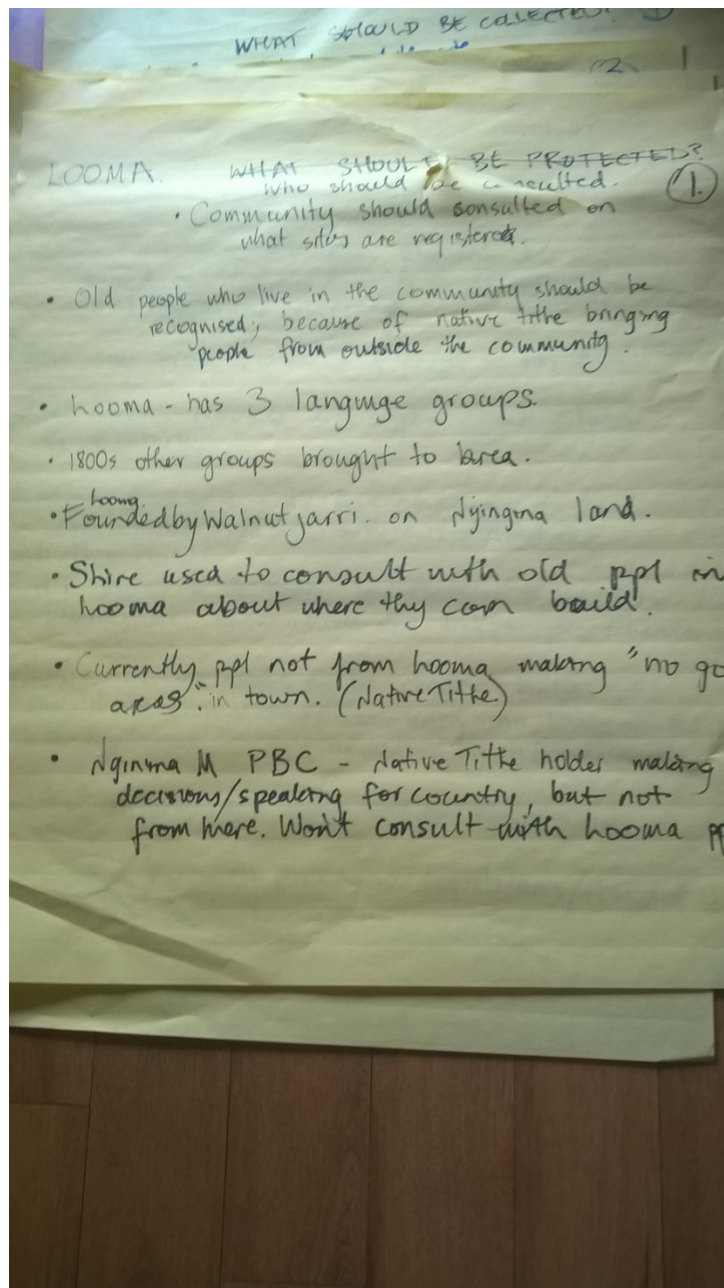 WHAT SHOULD BE COLLECTED?
(2)
LOOMA. WHAT SHOULD BE PROTECTED?
who should be consulted.
(1.)
• Community should consulted on
what sites are registered.
• Old people who live in the community should be
recognised, because of native title bringing
people from outside the community.
• Looma - has 3 languge groups.
• 1800s other groups brought to area.
Looma
• Founded by Walnutjarri. on Nyingina land.
• Shire used to consult with old ppl in
Looma about where thy can build.
• Currently ppl not from Looma making "no go
areas" in town. (Native Title)
• Nginina M PBC - Native Title holder making
decisions/speaking for country, but not
from here. Won't consult with Looma